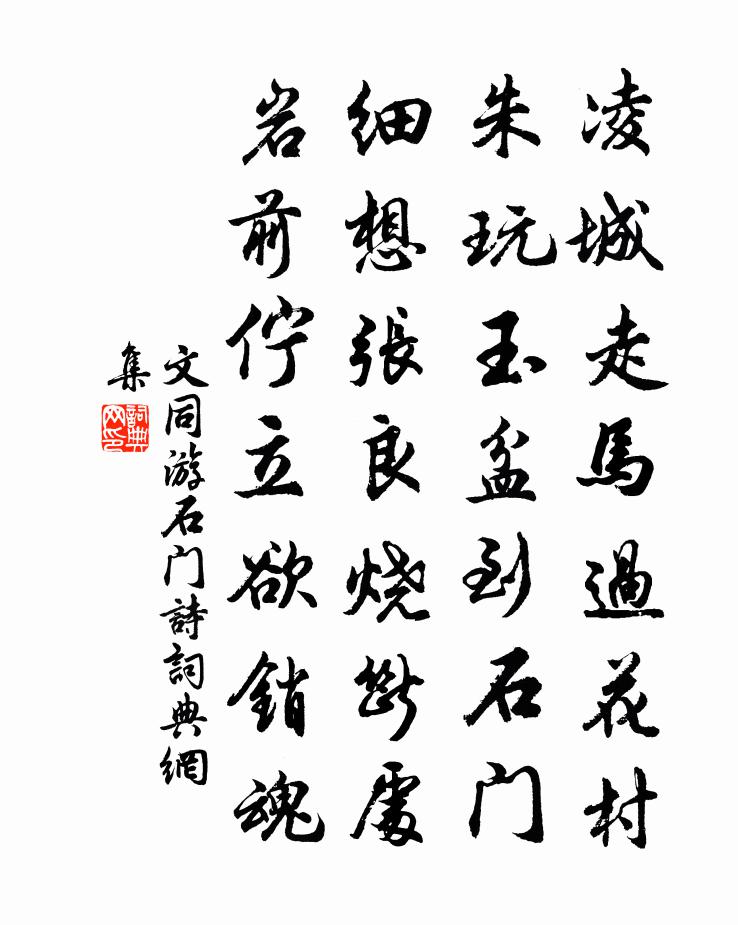 凌城走馬過花村
朱玩玉盆到石门
細想張良烧斷處
岩前佇立欲銷魂
文同游石门詩詞典網
集
詞典网印